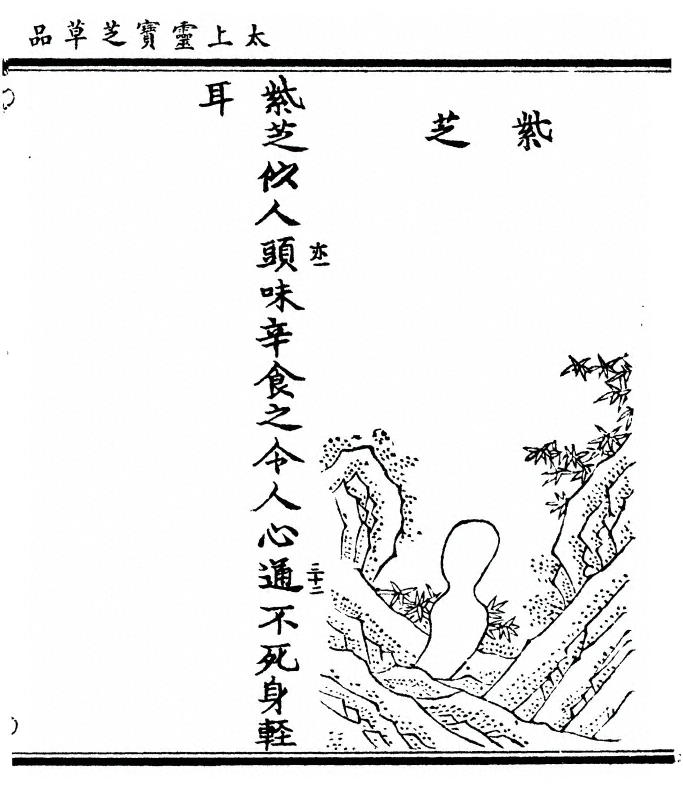 太上靈寶芝草品
紫芝
紫芝似人頭味辛食之令人心通不死身軽
耳
亦一
三十二